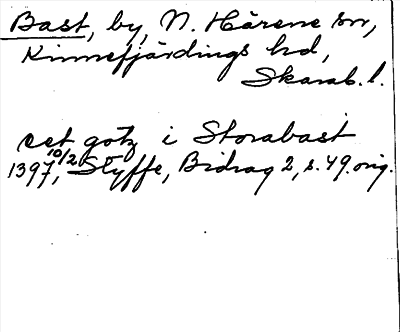 Bast, by, N. Härene sn,
Kinnefjärdings hd,
Skarab. l.
eet gotz i Storabast
1397 10/2, Styffe, Bidrag 2, s. 49. orig.